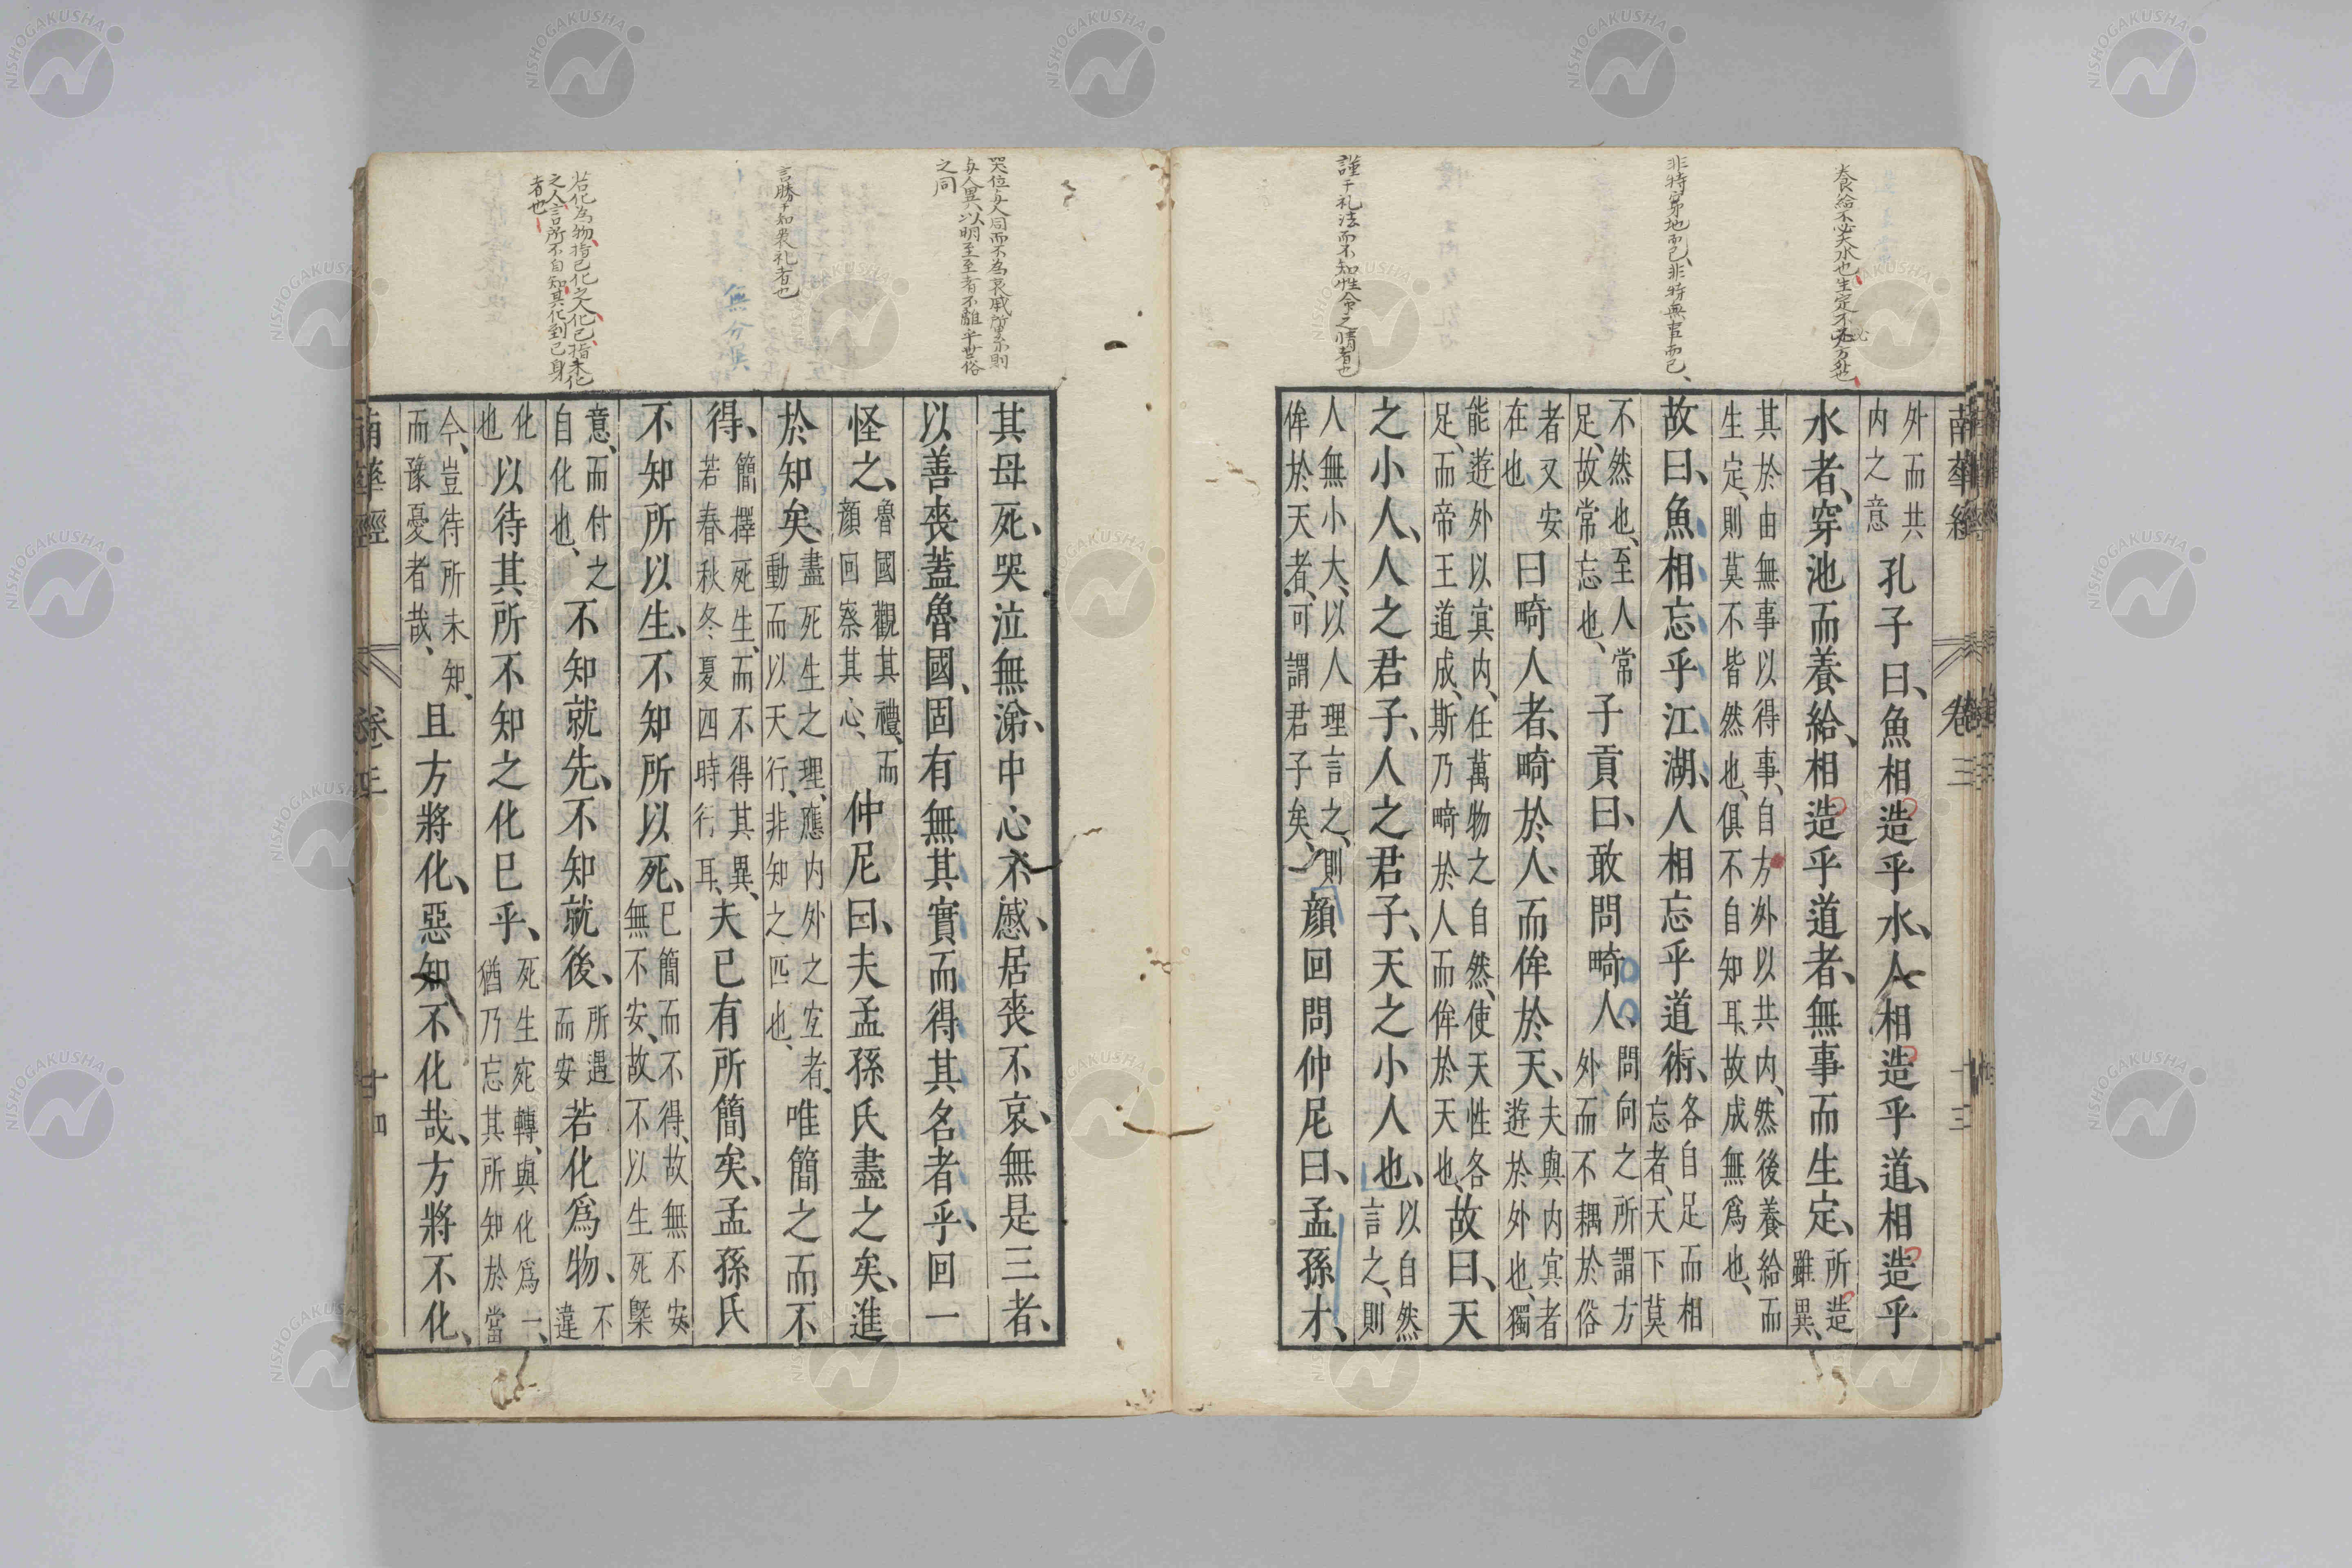 養給不必夫水也生定不必方外也
非特穿池而已非特無事而已、
謹于礼法而不知性命之情者也
南華經 卷三 十三
外而共
内之意
孔子曰、魚相造乎水、人相造乎道、相造乎
水者、穿池而養給、相造乎道者、無事而生定、
所造
雖異、
其於由無事以得事、自方外以共内、然後養給而
生定、則莫不皆然也、俱不自知耳、故成無爲也、
故曰、魚相忘乎江湖、人相忘乎道術、
各自足而相
忘者、天下莫
不然也、至人常
足、故常忘也、
子貢曰、敢問畸人、
問向之所謂方
外、而不耦於俗
者又安
在也
曰畸人者、畸於人、而侔於天、
夫與内冥者
遊於外也、獨
能遊外以冥内、任萬物之自然、使天性各
足、而帝王道成、斯乃畸於人而侔於天也、
故曰、天
之小人、人之君子、人之君子、天之小人也、
以自然
言之、則
人無小大、以人理言之、則
侔於天者、可謂君子矣、
顔回問仲尼曰、孟孫才、
哭位与人同而不為哀戚所累則
与人異以明至至者不離乎世俗
之同
言勝于知喪礼者也
若化為物、指已化之人化已、指未化
之人言所不自知其化到己身
者也
其母死、哭泣無涕、中心不慼、居喪不哀、無是三者、
以善喪蓋魯國、固有無其實而得其名者乎、回一
怪之、
魯國觀其禮、而
顔回察其心、
仲尼曰、夫孟孫氏盡之矣、進
於知矣、
盡死生之理、應内外之宜者、
動而以天行、非知之匹也、
唯簡之而不
得、
簡擇死生、而不得其異、
若春秋冬夏四時行耳、
夫已有所簡矣、孟孫氏
不知所以生、不知所以死、
已簡而不得、故無不安
無不安、故不以生死槩
意、而付之
自化也、
不知就先、不知就後、
所遇
而安
若化爲物、
不
違
化
也
以待其所不知之化已乎、
死生宛轉、與化爲一、
猶乃忘其所知於當
今、豈待所未知、
而豫憂者哉、
且方將化、惡知不化哉、方將不化、
南華經 卷三 廿四